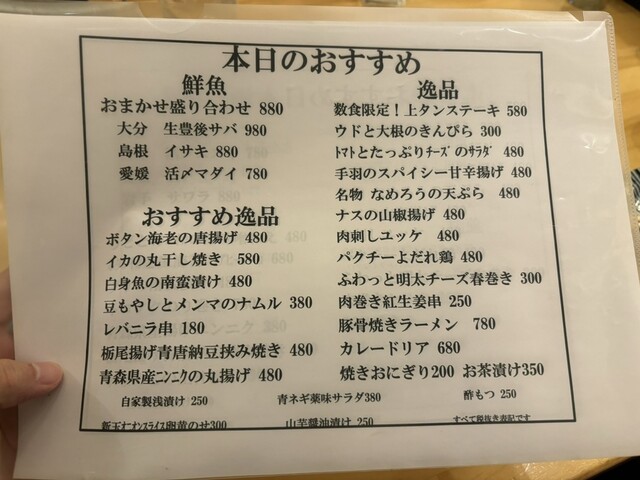 本日のおすすめ
鮮魚
おまかせ盛り合わせ 880
大分 生豊後サバ 980
島根 イサキ 880
愛媛 活〆マダイ 780
おすすめ逸品
ボタン海老の唐揚げ 480
イカの丸干し焼き 580
白身魚の南蛮漬け 480
豆もやしとメンマのナムル 380
レバニラ串 180
栃尾揚げ青唐納豆挟み焼き 480
青森県産ﾆﾝﾆｸの丸揚げ 480
逸品
数食限定!上タンステーキ 580
ウドと大根のきんぴら 300
ﾄﾏﾄとたっぷりﾁｰｽﾞのｻﾗﾀﾞ 480
手羽のスパイシー甘辛揚げ 480
名物 なめろうの天ぷら 480
ナスの山椒揚げ 480
肉刺しユッケ 480
パクチーよだれ鶏 480
ふわっと明太チーズ春巻き 300
肉巻き紅生姜串 250
豚骨焼きラーメン 780
カレードリア 680
焼きおにぎり200 お茶漬け350
自家製浅漬け 250 青ネギ薬味サラダ380 酢もつ 250
新玉ｽﾗｲｽ卵黄のせ300 山芋醤油漬け 250 すべて税抜き表記です